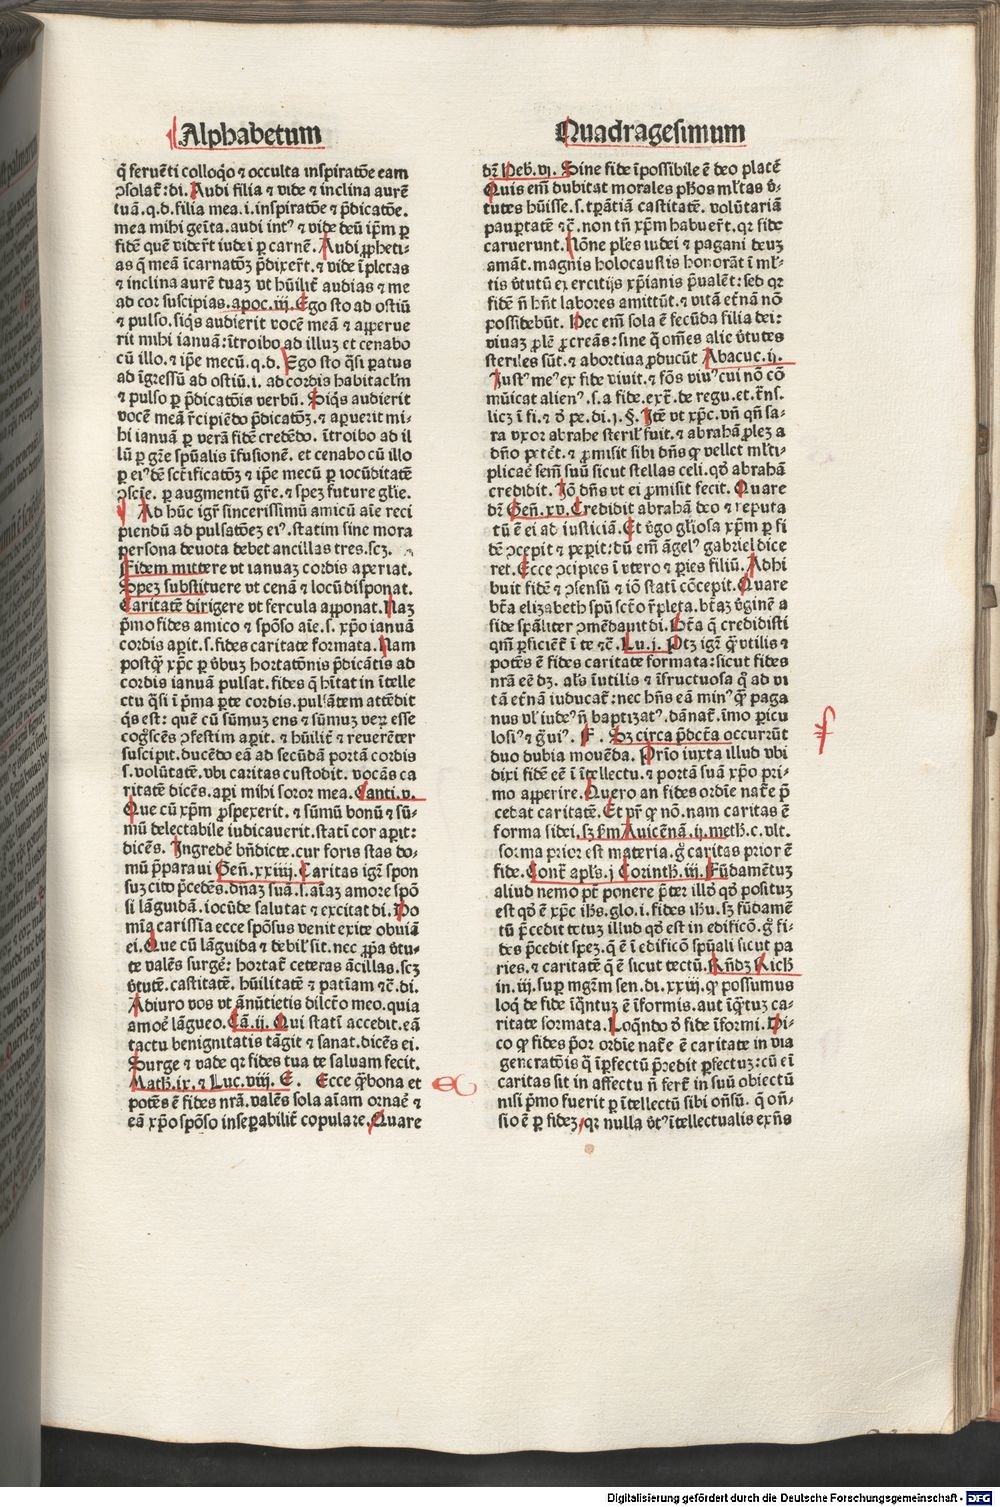 Alphabetum
Quadragesimum
q̃ feruẽti colloq̃o ⁊ occulta inspiratõe eam
ↄsolat̃: di. Audi filia ⁊ vide ⁊ inclina aurẽ
tuã. q.d. filia mea .i. inspiratõe ⁊ p̃dicatõe.
mea mihi geĩta. audi intꝰ ⁊ vide deũ ip̃m ꝑ
fidẽ quẽ vidert̃ iudei ꝑ carnẽ. Audi ꝓpheti-
as q̃ meã ĩcarnatõꝫ p̃dixert̃. ⁊ vide ĩpletas
⁊ inclina aurẽ tuaꝫ vt hũilit̃ audias ⁊ me
ad cor suscipias. apoc.iij. Ego sto ad ostiũ
⁊ pulso. siq̃s audierit vocẽ meã ⁊ aꝑerue
rit mihi ianuã: ĩtroibo ad illuꝫ et cenabo
cũ illo. ⁊ ip̃e mecũ. q.d. Ego sto q̃si ꝑatus
ad ĩgressũ ad ostiũ .i. ad cordis habitacl̃m
⁊ pulso ꝑ p̃dicatõis verbũ. Siq̃s audierit
vocẽ meã r̃cipiẽdo p̃dicatõꝫ. ⁊ aperuerit mi-
hi ianuã ꝑ verã fidẽ credẽdo. ĩtroibo ad il
lũ ꝑ gr̃e spũalis ĩfusionẽ. et cenabo cũ illo
ꝑ eiꝰdẽ sct̃ificatõꝫ ⁊ ip̃e mecũ ꝑ iocũditatẽ
ↄscĩe. ꝑ augmentũ gr̃e. ⁊ speꝫ future glĩe.
Ad hũc igr̃ sincerissimũ amicũ aĩe reci
piendũ ad pulsatõeꝫ eiꝰ. statim sine mora
persona deuota debet ancillas tres. scꝫ.
Fidem mittere vt ianuaꝫ cordis aperiat.
Speꝫ substituere vt cenã ⁊ locũ disponat.
Caritatẽ dirigere vt fercula apponat. Naꝫ
p̃mo fides amico ⁊ spõso aĩe. s. xp̃o ianuã
cordis aꝑit. s. fides caritate formata. Nam
postq̃ xp̃c ꝑ v̾buꝫ hortatõnis p̃dicãtis ad
cordis ianuã pulsat. fides q̃ hĩtat in ĩtelle
ctu q̃si ĩ p̃ma ꝑte cordis. pulsãtem attẽdit
q̃s est: quẽ cũ sũmuꝫ ens ⁊ sũmuꝫ veꝝ esse
cog̃scẽs ↄfestim aꝑit. ⁊ hũilit̃ ⁊ reuerẽter
suscipit. ducẽdo eã ad secũdã portã cordis
s. volũtatẽ. vbi caritas custodit. vocãs ca
ritatẽ dicẽs. aꝑi mihi soror mea. Canti.v.
Que cũ xp̃m ꝓspexerit. ⁊ sũmũ bonũ ⁊ sũ-
mũ delectabile iudicauerit. statĩ cor aꝑit:
dicẽs. Ingredẽ bñdicte. cur foris stas do-
mũ p̃paraui Geñ.xxiiij. Caritas igr̃ spon
suꝫ cito p̃cedẽs. dñaꝫ suã. s. aĩaꝫ amore spõ
si lãguidã. iocũde salutat ⁊ excitat di. Do
mĩa carissĩa ecce spõsus venit exite obuiã
ei. Que cũ lãguida ⁊ debil̃ sit. nec ꝓpa v̾tu-
te valẽs surgẽ: hortat̃ ceteras ãcillas. scꝫ
v̾tutẽ. castitatẽ. hũilitatẽ ⁊ patĩam ⁊c̃. di.
Adiuro vos vt ãnũtietis dilcto meo. quia
amoẽ lãgueo. Cã.ij. Qui statĩ accedit. eã
tactu benignitatis tãgit ⁊ sanat. dicẽs ei.
Surge ⁊ vade qꝛ fides tua te saluam fecit.
Math.ix. ⁊ Luc.viij. E. Ecce q̃ bona et
potẽs ẽ fides nr̃a. valẽs sola aĩam ornaẽ ⁊
eã xp̃o spõso inseꝑabilit̃ copulare. Quare
dꝛ̃ Heb.vj. Sine fide ĩpossibile ẽ deo placẽ
Quis em̃ dubitat morales ph̃os ml̃tas v̾-
tutes hũisse. s. tꝑãtiã castitatẽ. volũtariã
paupertatẽ ⁊c̃. non tñ xp̃m habuert̃. qꝛ fide
caruerunt. Nõne pl̃es iudei ⁊ pagani deuꝫ
amãt. magnis holocaustis honorãt ĩ ml̃-
tis v̾tutũ exercitijs xp̃ianis p̃ualẽt: sed qꝛ
fidẽ ñ hñt labores amittũt. ⁊ vitã et̃nã nõ
possidebũt. Hec em̃ sola ẽ fecũda filia dei:
viuaꝫ plẽ ꝓcreãs: sine q̃ om̃es alie v̾tutes
steriles sũt. ⁊ abortiua ꝓducũt Abacuc.ij.
Iustꝰ meꝰ ex fide viuit. ⁊ fõs viuꝰ cui nõ cõ
mũicat alienꝰ. s. a fide. extr̃. de regu. et.tr̃ns.
licꝫ ĩ fi. ⁊ ð pe. di.j. §. Itẽ vt xp̃c. vñ qñ sa-
ra vxor abrahe steril̃ fuit. ⁊ abrahã ꝓleꝫ a
dño ꝑtẽt. ⁊ ꝓmisit sibi dñs ꝙ vellet ml̃ti-
plicaẽ semẽ suũ sicut stellas celi. qð abrahã
credidit. Iõ dñs vt ei ꝓmisit fecit. Quare
dꝛ̃ Geñ.xv. Credidit abrahã deo ⁊ reputa
tũ ẽ ei ad iusticiã. Et v̾go gl̃iosa xp̃m ꝑ fi
dẽ ↄcepit ⁊ peperit: dũ em̃ ãgelꝰ gabriel dice
ret. Ecce ↄcipies ĩ vtero ⁊ paries filiũ. Adhi
buit fidẽ ⁊ ↄsensũ ⁊ iõ statĩ cõcepit. Quare
bt̃a elizabeth spũ sct̃o r̃pleta. bt̃aꝫ v̾ginẽ a
fide spãliter ↄmẽdauit di. Bt̃a q̃ credidisti
qm̃ ꝑficiẽt̃ ĩ te ⁊c̃. Lu.j. Ptꝫ igr̃ q̃ vtilis ⁊
potẽs ẽ fides caritate formata: sicut fides
nr̃a eẽ dꝫ. al̃s ĩutilis ⁊ ĩfructuosa q̃ ad vi
tã et̃nã iudicat̃: nec hñs eã minꝰ q̃ paga
nus vl̃ iudeꝰ ñ baptizatꝰ. dãnat̃. ĩmo ꝑicu
losiꝰ ⁊ g̃uiꝰ. F. Sꝫ circa p̃dct̃a occurrũt
duo dubia mouẽda. Prĩo iuxta illud vbi
dixi fidẽ eẽ ĩ ĩtellectu. ⁊ portã suã xp̃o pri-
mo apperire. Quero an fides ordĩe nat̃e p̃
cedat caritatẽ. Et pꝛ̃ ꝙ nõ. nam caritas ẽ
forma fidei. sꝫ fm̃ Auicẽnã.ij. meth̃.c.vlt.
forma prior est materia. g̊ caritas prior ẽ
fide. Contr̃ apl̃s.j Corinth̃.iij. Fũdamẽtuꝫ
aliud nemo pt̃ ponere p̃ter illð qð positũꝫ
est qð ẽ xp̃c ih̃s. glo.i. fides ih̃u. sꝫ fũdamẽ
tũ p̃cedit totuꝫ illud qð est in edificõ. g̊ fi-
des p̃cedit speꝫ. q̃ ẽ ĩ edificõ spũali sicut pa
ries. ⁊ caritatẽ q̃ ẽ sicut tectũ. Rñdꝫ Rich̃
in.iij. suꝑ mgr̃m sen. di.xxiij. ꝙ possumus
loq̃ de fide ĩq̃ntuꝫ ẽ ĩformis. aut ĩq̃tuꝫ ca-
ritate formata. Loq̃ndo ð fide ĩformi. Di-
co ꝙ fides p̃or ordĩe nat̃e ẽ caritate in via
generatõis q̃ ĩꝑfectũ p̃cedit ꝑfectuꝫ: cũ eĩ
caritas sit in affectu ñ fert̃ in suũ obiectũ
nisi p̃mo fuerit ꝑ ĩtellectũ sibi oñsũ. q̃ oñ-
sio ẽ ꝑ fideꝫ. qꝛ nulla v̾tꝰ ĩtellectualis exñs
f
Digitalisierung gefördert durch die Deutsche Forschungsgemeinschaft - DFG